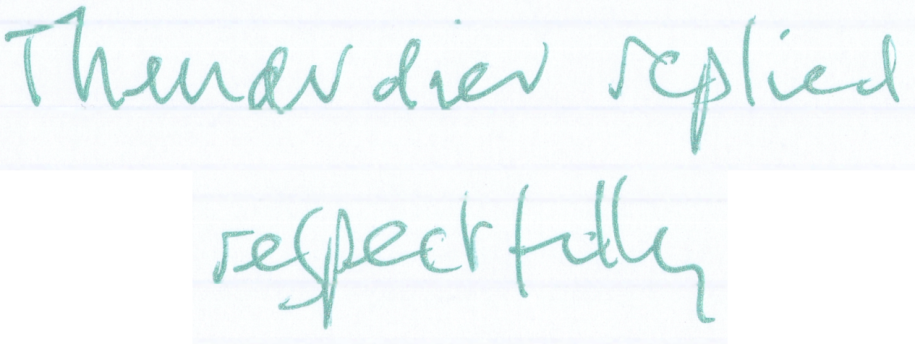 Thenardier replied
respectfully